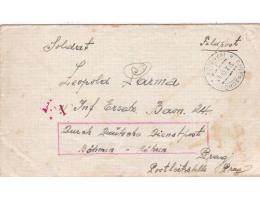 Soldat
Feldpost
Leopold Parma
Inf. Ersatz Baon
Durch Deutsche Dienstpost
Böhmen - Mähren
Prag
Postleitstelle Prag